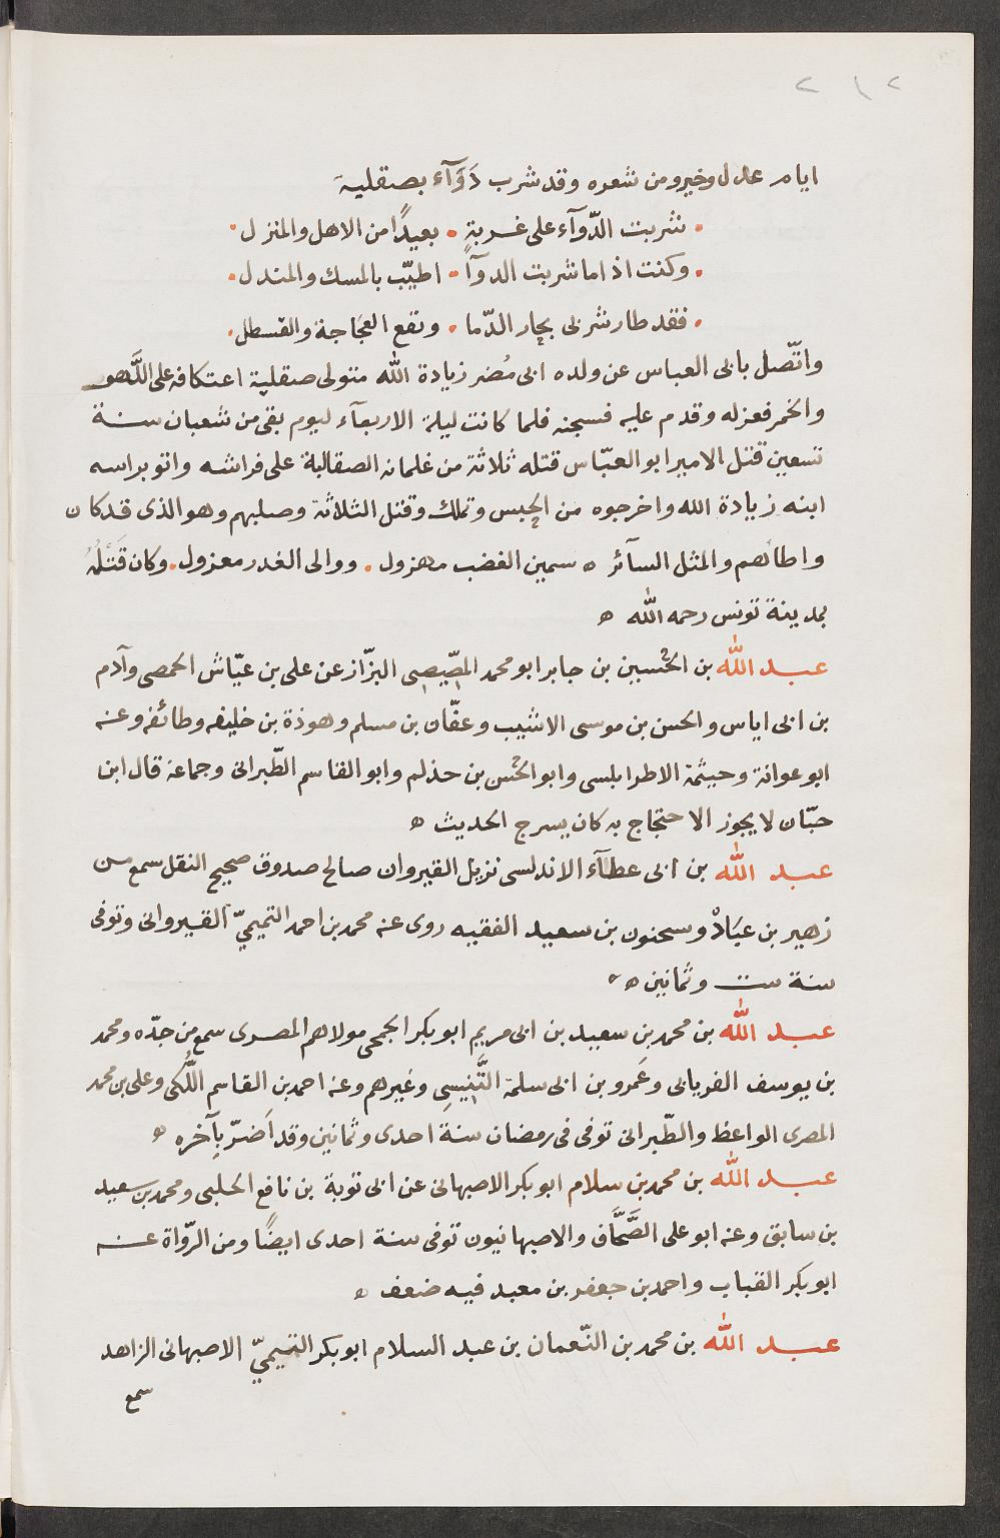 ٢١٢
ايام عدل وخير ومن شعره وقد شرب دَوَآء بصقلية
شربت الدّوآء على غربةٍ • بعيدًا من الاهل والمنزل •
وكنت اذ اما شربت الدوآ • اطيّب بالمسك والمندل •
فقد طار شربى بحار الدّما • ونقع العجَاجة والقسطل •
واتّصل بابى العباس عن ولده ابى مُضر زيادة الله متولى صقلية اعتكافه على اللَّهو
والخمر فعزله وقدم عليه فسجنه فلما كانت ليلة الاربعآء ليوم بقى من شعبان سنة
تسعين قتل الامير ابو العبّاس قتله ثلاثة من غلمانه الصقالبة على فراشه واتو براسه
ابنه زيادة الله واخرجوه من الحبس وتملك وقتل الثلاثة وصلبهم وهو الذى قد كان
واطاهم والمثل السآئر ه سمين الغضب مهزول • ووالى الغدر معزول • وكان قَتْلُهُ
بمدينة تونس رحمه الله ه
عبد الله بن الحُسين بن جابر ابو محمد المصّيصى البزّاز عن على بن عيّاش الحمصى وآدم
بن ابى اياس والحسن بن موسى الاشيب وعفّان بن مسلم وهوذة بن خليفه وطائفه وعنه
ابو عوانة وخيثمة الاطرابلسى وابو الحُسن بن حذلم وابو القاسم الطّبرانى وجماعة قال ابن
حبّان لا يجوز الاحتجاج به كان يسرح الحديث ه
عبد الله بن ابى عطآء الاندلسى نزيل القيروان صالح صدوق صحيح النقل سمع من
زهير بن عبَادْ وسحنون بن سعيد الفقيه روى عنه محمد بن احمد التميميّ القيروانى وتوفى
سنة ست وثمانين ه
عبد الله بن محمد بن سعيد بن ابى مريم ابو بكر الجمحى مولاهم المصرى سمع من جدّه ومحمد
بن يوسف الفريابى وعَمرو بن ابى سلمة التَّنِيسِى وغيرهم وعنه احمد بن القاسم اللُّكى وعلى بن محمد
المصرى الواعظ والطّبرانى توفى فى رمضان سنة احدى وثمانين وقد اَضرّ بآخره ه
عبد الله بن محمد بن سلام ابو بكر الاصبهانى عن ابى توبة بن نافع الحلبى ومحمد بن سعيد
بن سابق وعنه ابو على الصَّحَّاف والاصبهانيون توفى سنة احدى ايضًا ومن الرّواة عنه
ابو بكر القباب واحمد بن جعفر بن معبد فيه ضعف ه
عبد الله بن محمد بن النّعمان بن عبد السلام ابو بكر التيميّ الاصبهانى الزاهد
سمع